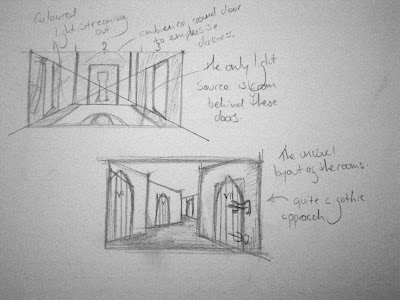 Coloured
light streaming
out
ambience around door
to emphasise
darkness
1 2 3
the only light
source is from
behind these
doors.
The unusual
layout of the rooms.
quite a gothic
approach
VI